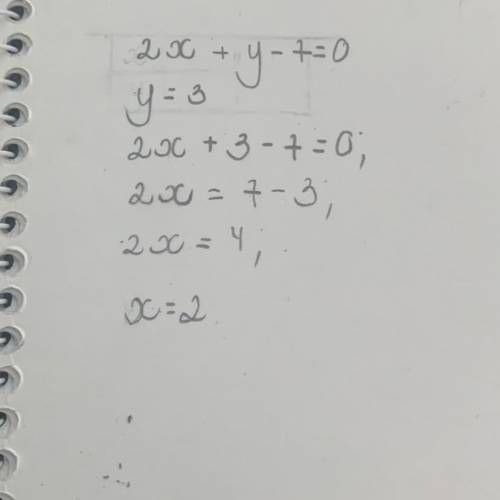 2x + y - 7 = 0
y = 3
2x + 3 - 7 = 0;
2x = 7 - 3;
2x = 4;
x = 2